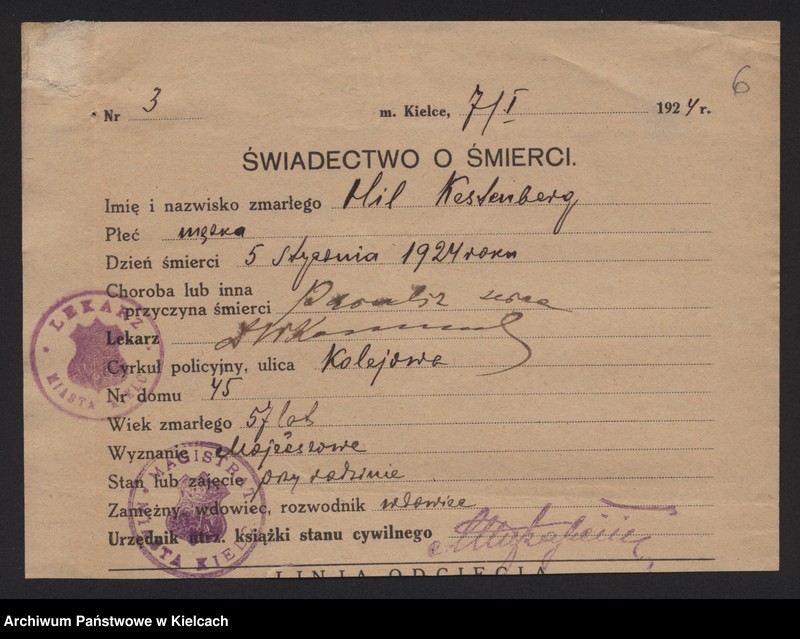 6
Nr 3 m. Kielce, 7/I 1924 r.
ŚWIADECTWO O ŚMIERCI.
Imię i nazwisko zmarłego Hil Kestenberg
Płeć męska
Dzień śmierci 5 stycznia 1924 roku
Choroba lub inna
przyczyna śmierci Paraliż serca
Lekarz
Cyrkuł policyjny, ulica Kolejowa
Nr domu 45
Wiek zmarłego 57 lat
Wyznanie Mojżeszowe
Stan lub zajęcie przy rodzinie
Zamężny, wdowiec, rozwodnik wdowiec
Urzędnik utrz. książki stanu cywilnego
LINJA ODCIĘCIA
LEKARZ
MIASTA KIELC
MAGISTRAT
MIASTA KIELC
Archiwum Państwowe w Kielcach